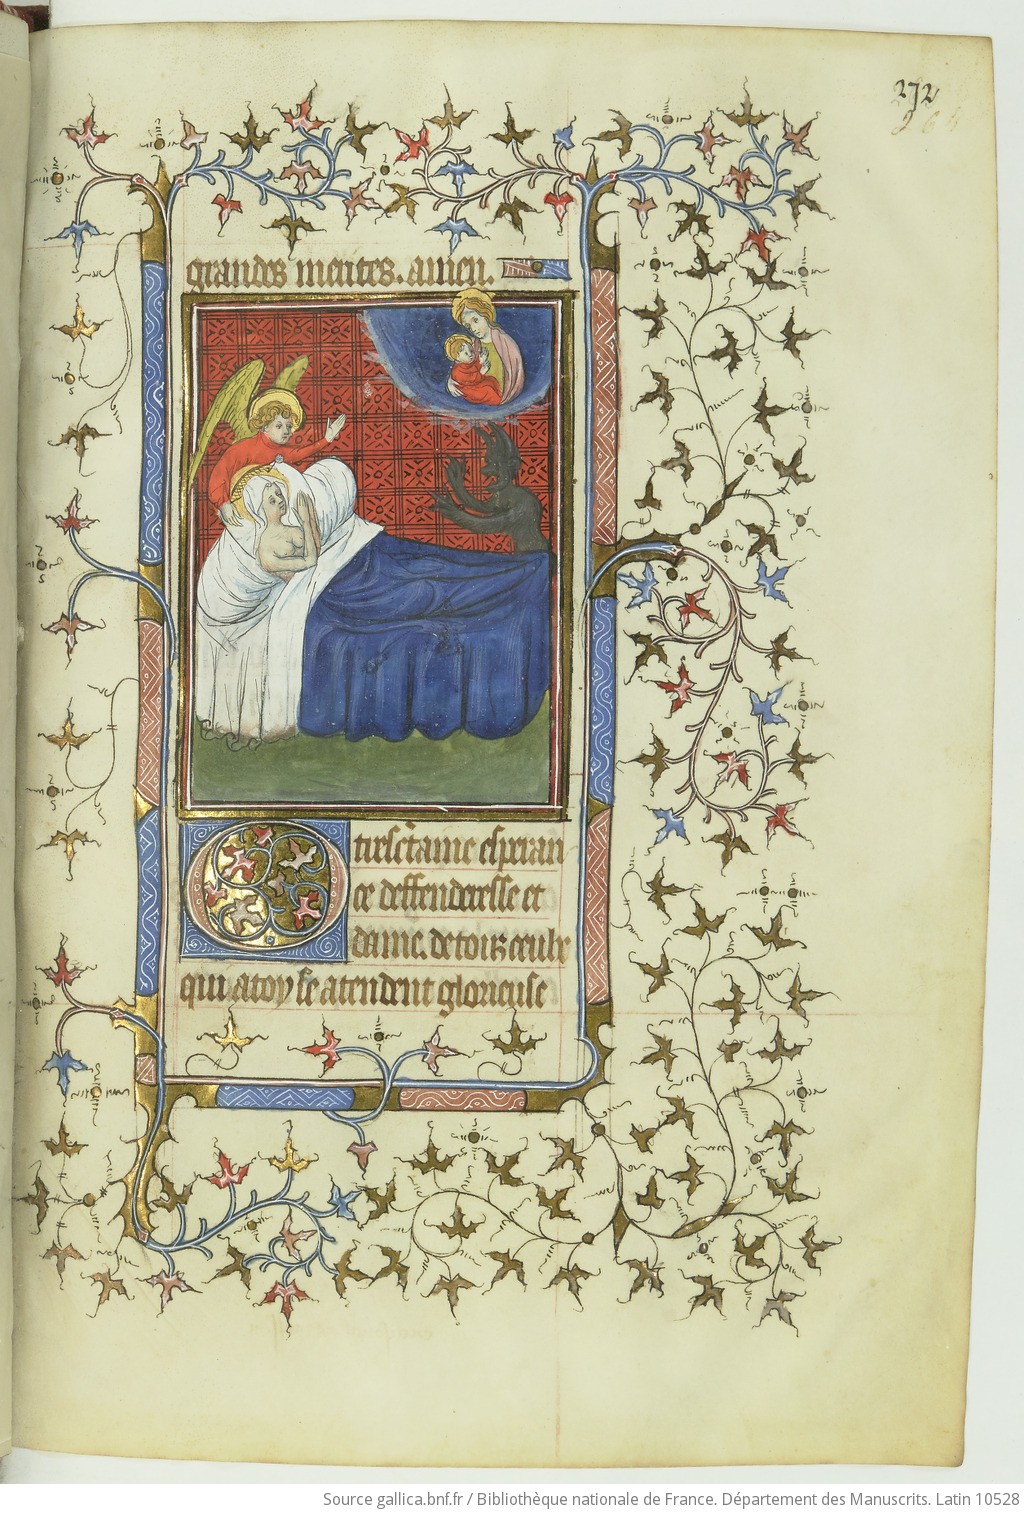 272
grandes merites. amen.
O tresc̃taine esperan
ce deffenderesse et
dame. de tous ceulx
qui a toy se atendent glorieuse
Source gallica.bnf.fr / Bibliothèque nationale de France. Département des Manuscrits. Latin 10528